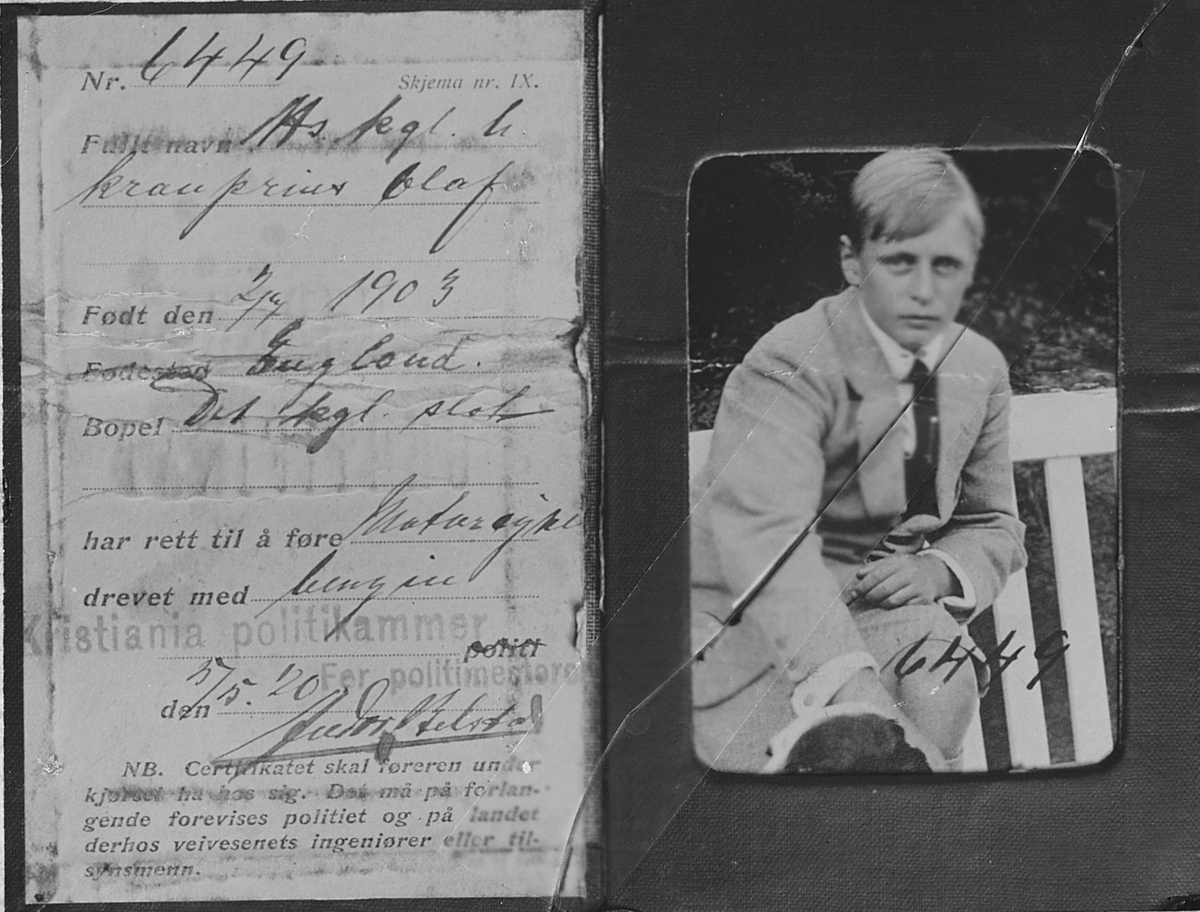 Nr. 6449 Skjema nr. IX.
Fullt navn Hs. kgl. h.
kronprins Olaf
Født den 2/7 1903
Fødested England.
Bopel Det kgl. slot
har rett til å føre Motorcykel
drevet med benzin
Kristiania politikammer
politi
For politimesteren
den 5/5. 20
NB. Certifikatet skal føreren under
kjørsel ha hos sig. Det må på forlan-
gende forevises politiet og på landet
derhos veivesenets ingeniører eller til-
synsmenn.
6449